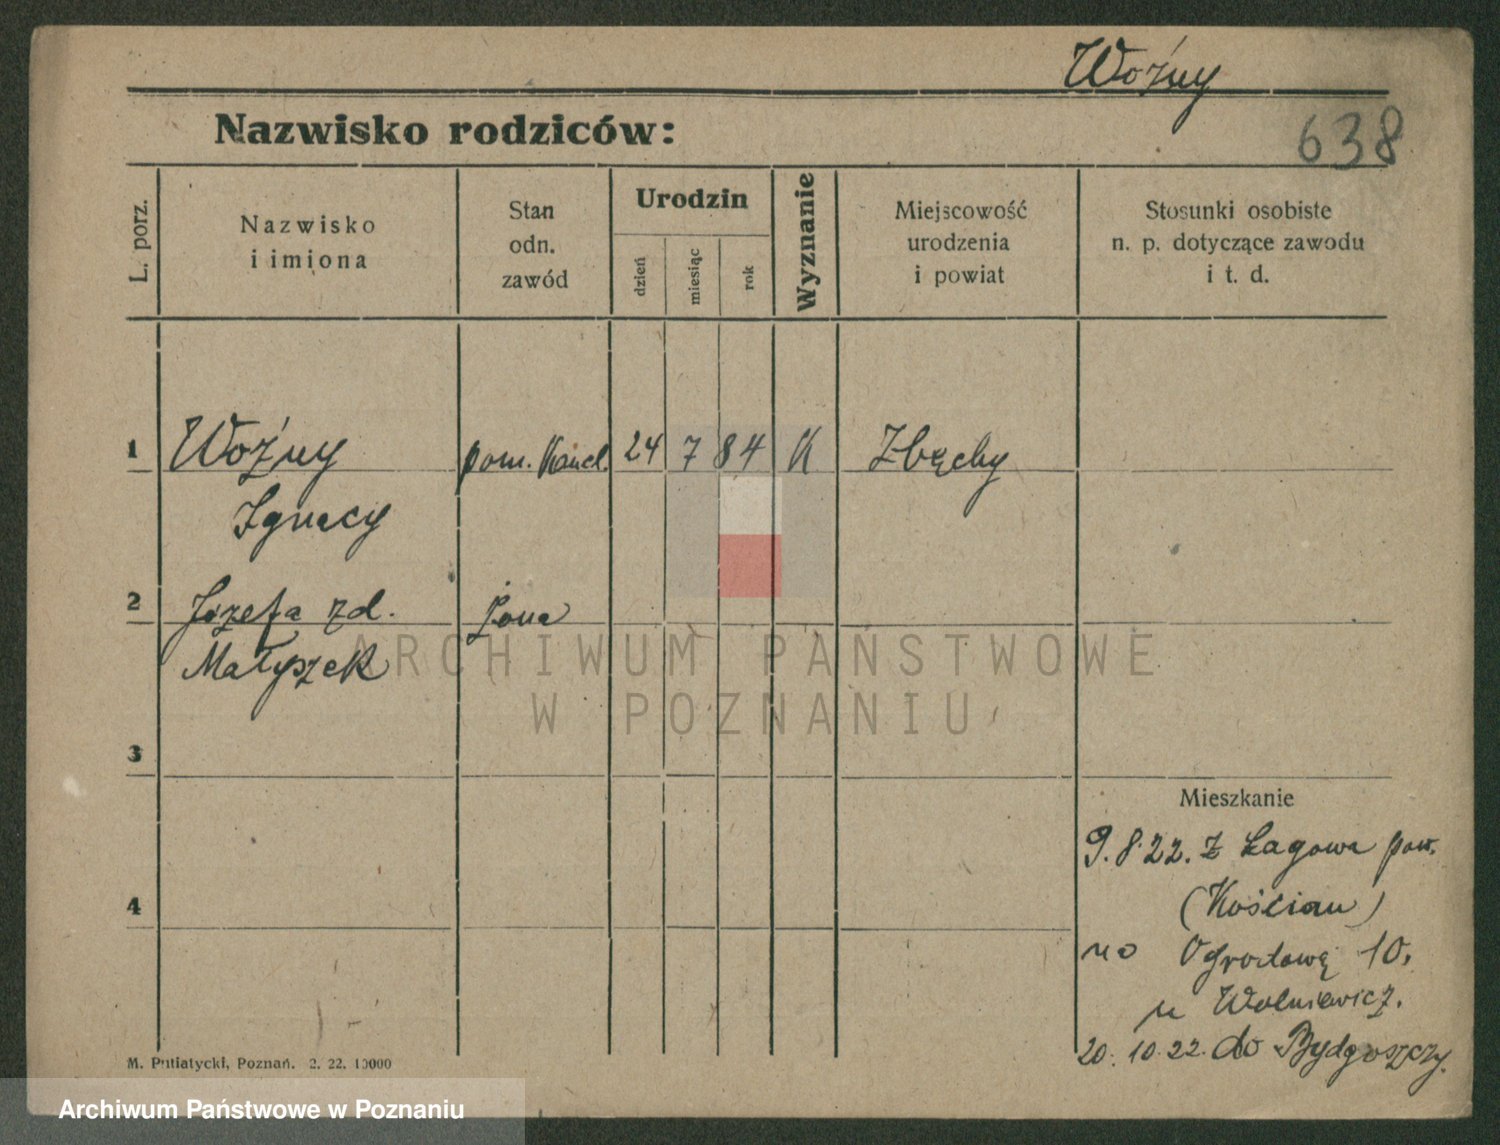 Woźny
Nazwisko rodziców:
638
L. porz.
Nazwisko
i imiona
Stan
odn.
zawód
Urodzin
dzień
miesiąc
rok
Wyznanie
Miejscowość
urodzenia
i powiat
Stosunki osobiste
n. p. dotyczące zawodu
i t. d.
1 Woźny pom. Kancl. 24 7 84 K Zbęchy
Ignacy
2 Józefa zd. żona
Małyszek
ARCHIWUM PAŃSTWOWE
W POZNANIU
3
Mieszkanie
9.8.22. z Łagowa pow.
(Kościan)
4
na Ogrodową 10.
u Wolniewicz.
20.10.22. do Bydgoszczy.
M. Putiatycki, Poznań. 2. 22. 10000
Archiwum Państwowe w Poznaniu